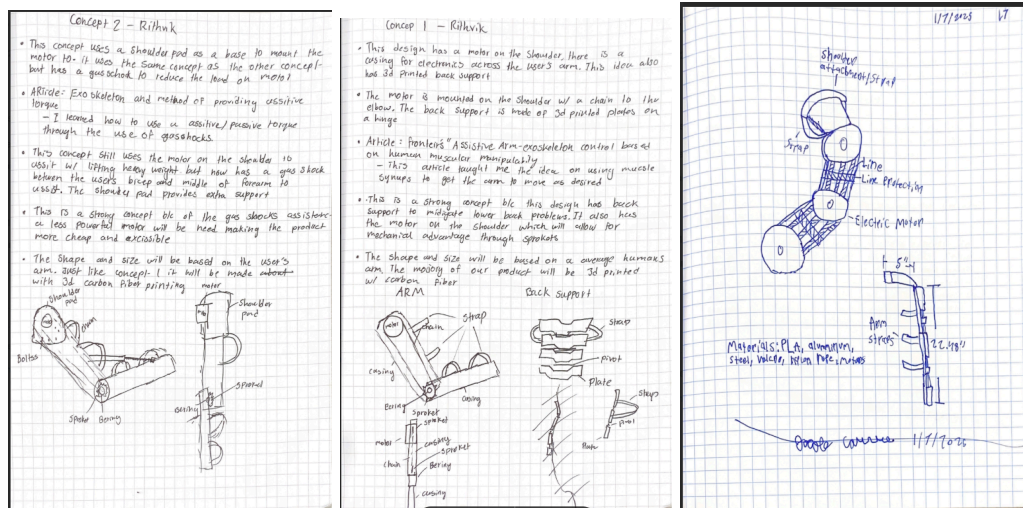 Concept 2 - Rithvik
• This concept uses a shoulder pad as a base to mount the
motor to. it uses the same concept as the other concept-
but has a gas schock to reduce the load on motor
• ARticle: Exoskeleton and method of providing assitive
torque
- I learned how to use a assitive/passive torque
through the use of gas shocks.
• This concept still uses the motor on the shoulder to
assit w/ lifting heavy weight but now has a gas shock
between the users bicep and middle of forearm to
assist. The shoulder pad provides extra support
• This is a strong concept b/c of the gas shocks assistance
a less powerful motor will be need making the product
more cheap and accissible
• The shape and size will be based on the user's
arm. Just like concept 1 it will be made about
with 3d carbon fiber printing
motor
Shoulder
pad
chain
Boltss
Sproket
Bering
Shoulder
pad
sproket
Bering
Concep 1 - Rithvik
• This design has a motor on the shoulder, there is a
casing for electronics across the user's arm. This idea also
has 3d printed back support
• The motor is mounted on the shoulder w/ a chain to the
elbow. The back support is made of 3d printed plates on
a hinge
• Article: frontiers "Assistive Arm-exoskeleton control based
on human muscular manipulability
- This article taught me the idea on using muscle
synups to get the arm to move as desired
• This is a strong concept b/c this design has back
support to midigate lower back problems. It also has
the motor on the shoulder which will allow for
mechanical advantage through sprokets
• The shape and size will be based on a average humans
arm. The majority of our product will be 3d printed
w/ carbon fiber
ARM
Back support
motor
chain
Strap
casing
Bering
casing
sproket
sproket
motor
casing
sproket
chain
Bering
casing
strap
pivot
Plate
Strap
pivot
Plate
1/7/2025 LT
Shoulder
attachment/strap
Strap
Line
Line Protection
Electric Motor
5"
Arm
straps
22.48"
Materials: PLA, aluminum,
steel, velcro, nylon rope, motors
1/7/2025